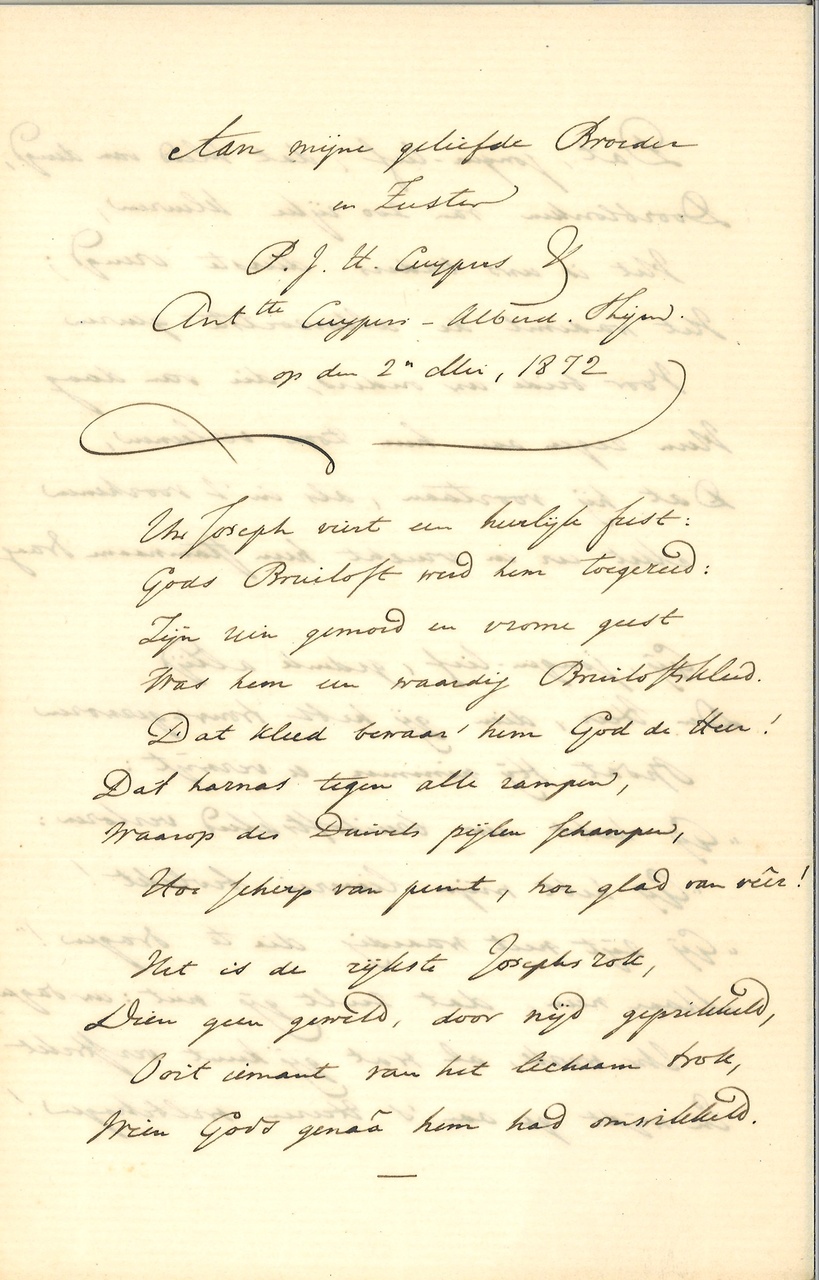 Aan mijne geliefde Broeder
en Zuster
P. J. H. Cuypers &
Ant^tte Cuypers - Alberd. Thijm.
op den 2ⁿ Mei, 1872
Uw Joseph viert een heerlijk feest:
Gods Bruiloft werd hem toegereed:
Zijn rein gemoed en vrome geest
Was hem een waardig Bruiloftskleed.
Dat kleed bewaar' hem God de Heer!
Dat harnas tegen alle rampen,
Waarop des Duivels pijlen schampen,
Hoe scherp van punt, hoe glad van vêer!
Het is de rijkste Josephs rok,
Dien geen geweld, door nijd geprikkeld,
Ooit iemant van het lichaam trok,
Wien Gods genaâ hem had omwikkeld.